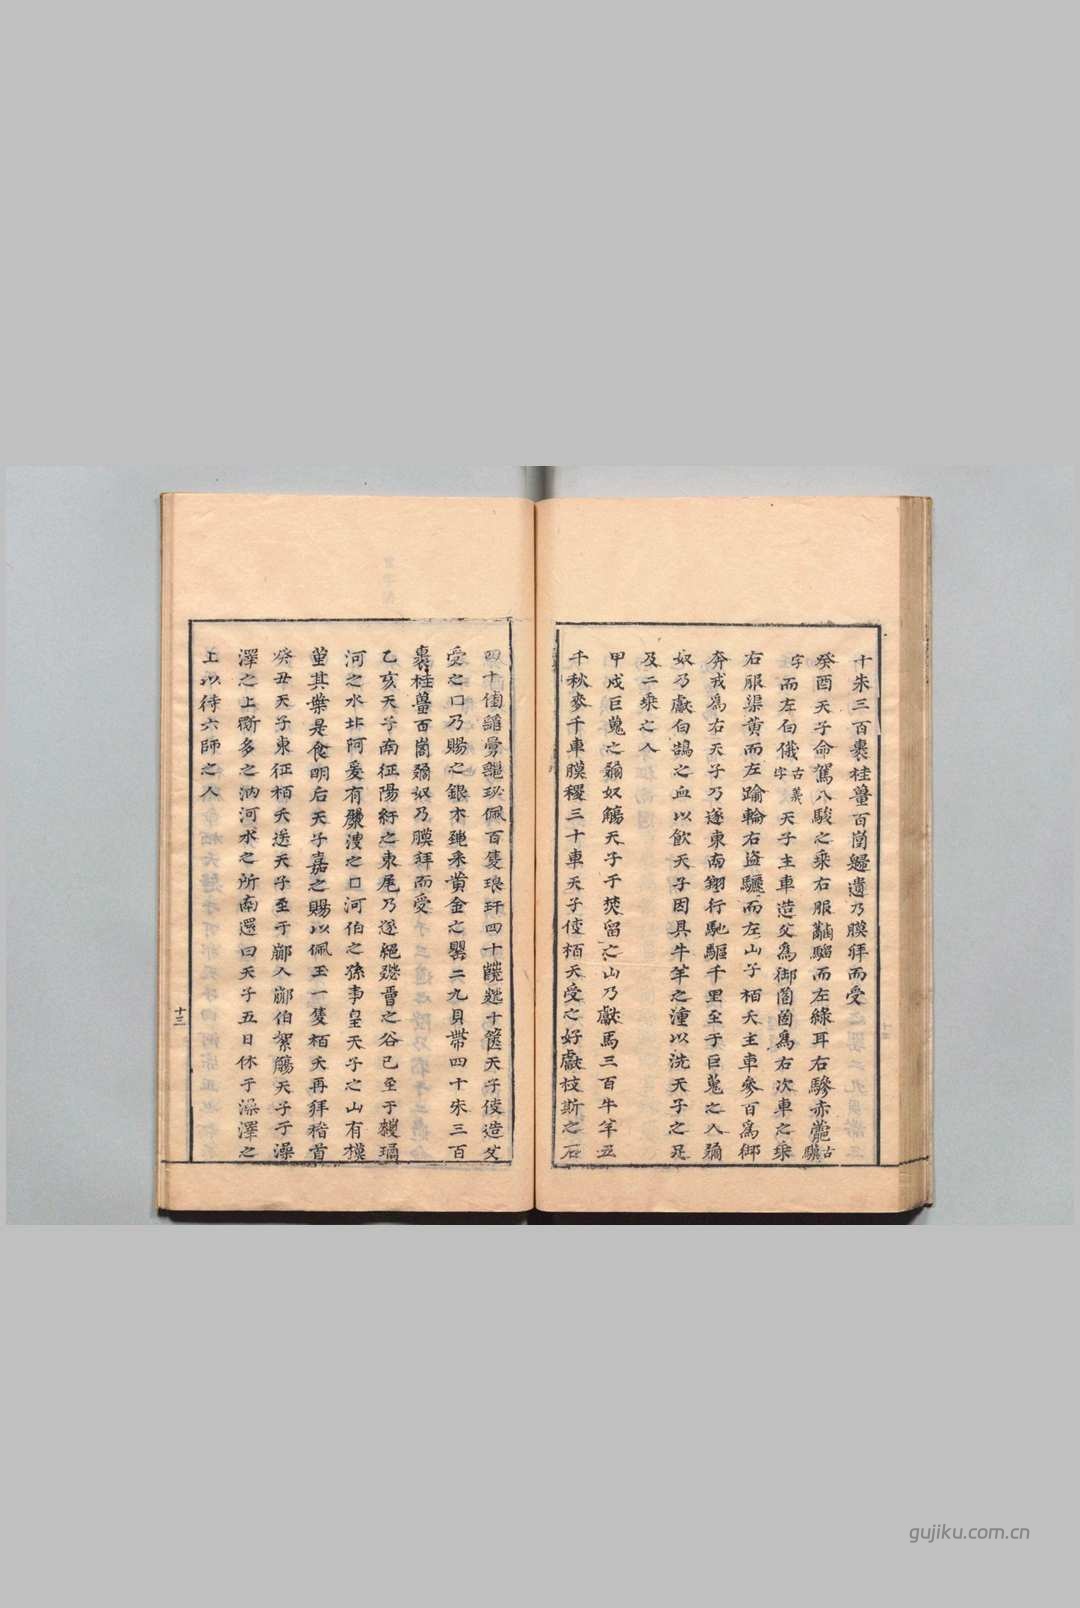 十朱三百裹桂薑百𡇈歸遺乃膜拜而受
癸酉天子命駕八駿之乘右服𩢍騮而左綠耳右驂赤蘎古驥
字而左白儀古義字天子主車造父爲御𡇈𡇈爲右次車之乘
右服渠黃而左踰輪右盜驪而左山子栢夭主車參百爲御
奔戎爲右天子乃遂東南翔行馳驅千里至于巨蒐之人㺑
奴乃獻白鵠之血以飲天子因具牛羊之湩以洗天子之足
及二乘之人
甲戌巨蒐之㺑奴觴天子于焚留之山乃獻馬三百牛羊五
千秋麥千車膜稷三十車天子使栢夭受之好獻枝斯之石
四十 珌佩百隻琅玕四十 十篋天子使造父
受之口乃賜之銀木 采黃金之罌二九貝帶四十朱三百
裹桂薑百𡇈㺑奴乃膜拜而受
乙亥天子南征陽紆之東尾乃遂絕 之谷已至于
河之水北阿爰有 溲之口河伯之孫事皇天子之山有模
堇其葉是食明后天子嘉之賜以佩玉一隻栢夭再拜稽首
癸丑天子東征栢夭送天子至于䣙人䣙伯絮觴天子于澡
澤之上 多之汭河水之所南還曰天子五日休于澡澤之
上以待六師之人
十三
gujiku.com.cn